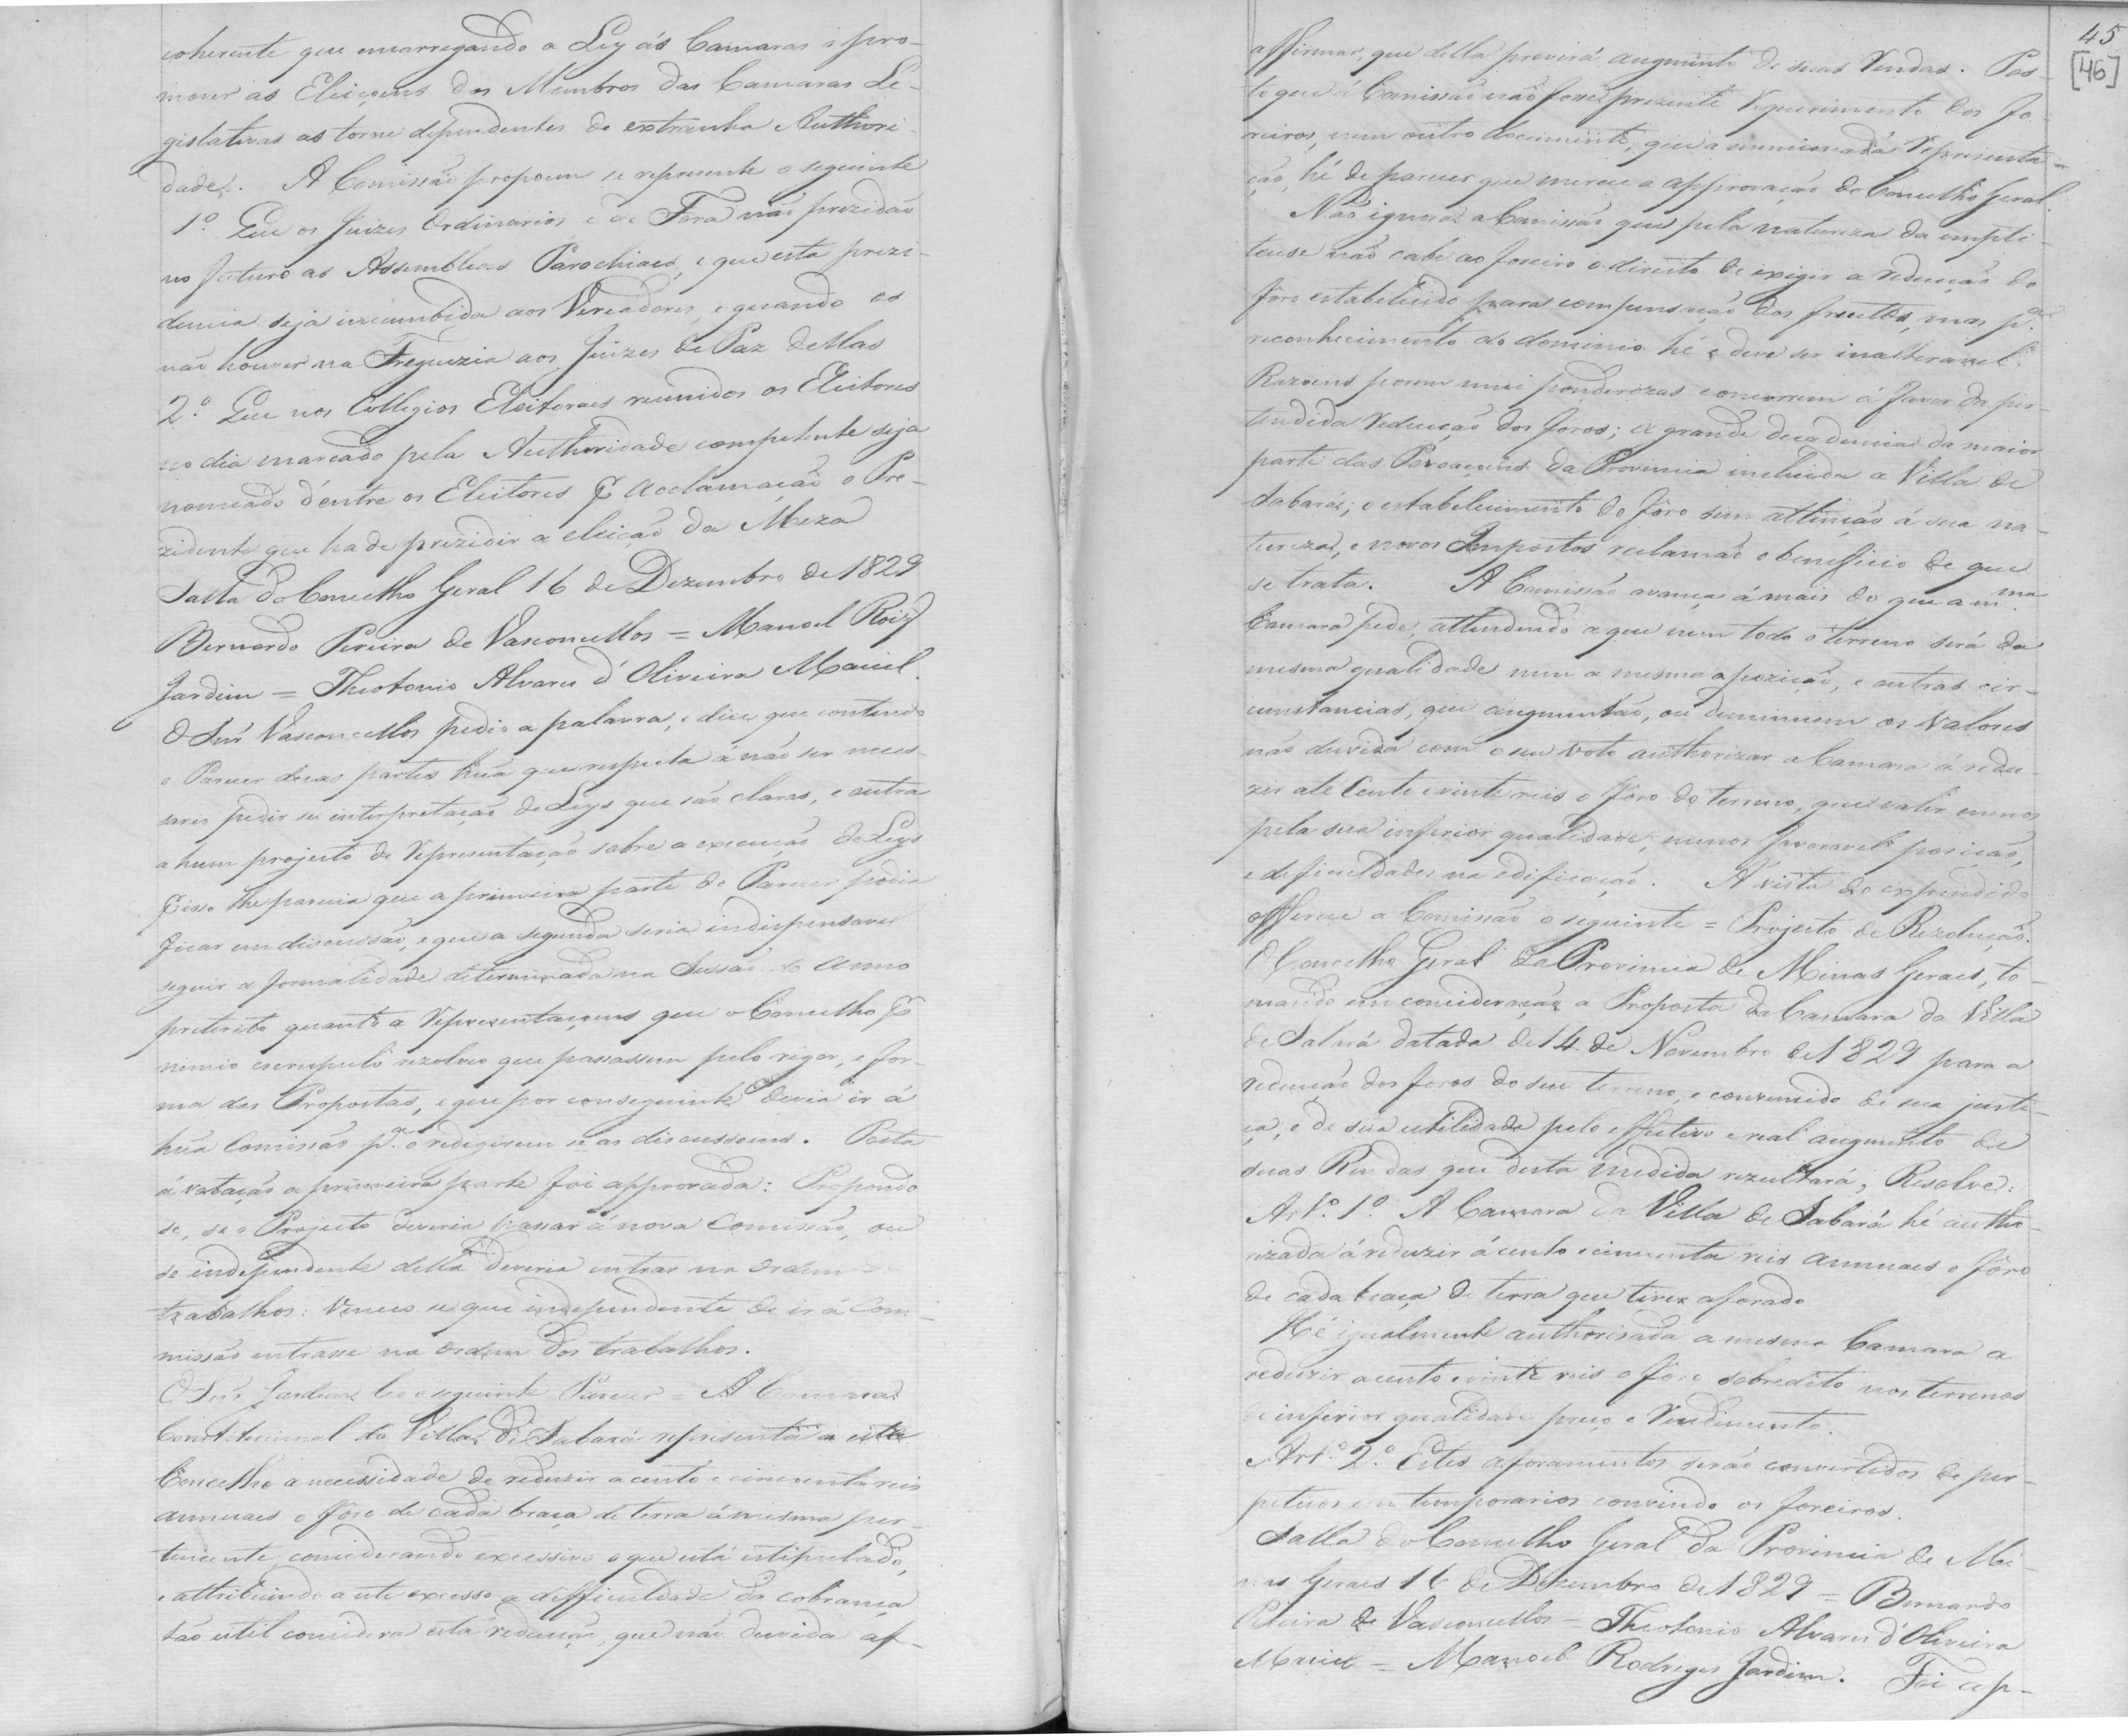 coherente que encarregando a Ley ás Camaras o pro-
mover as Eleiçoens dos Membros das Camaras Le-
gislativas as torne dependentes de extranha Authori-
dade. A Comissão propoem se represente o seguinte
1º Que os Juizes Ordinarios e de Fora não prezidão
no futuro as Assembleas Parochiaes, e que esta prezi-
dencia seja incumbida aos Vereadores, e quando os
não houver na Freguezia aos Juizes de Paz dellas
2º Que nos Collegios Eleitoraes reunidos os Eleitores
no dia marcado pela Authoridade competente seja
nomeado d'entre os Eleitores p. Acclamação o Pre-
zidente que hade prezidir a eleição da Meza
Salla do Concelho Geral 16 de Dezembro de 1829
Bernardo Pereira de Vasconcellos = Manoel Roiz
Jardim = Theotonio Alvares d'Oliveira Maciel.
O Snr Vasconcellos pedio a palavra, e dice que contendo
o Parecer duas partes hũa que respeita á não ser neces-
sario pedir se interpretação de Leys que são claras, e outra
a hum projecto de Representação sobre a execução de Leys
p. isso lhe parecia que a primeira parte do Parecer podia
ficar em discussão, e que a segunda seria indispensavel
seguir a formalidade determinada na Sessão do anno
preterito quanto a Representaçoens que o Concelho p.
nimio escrupulo rezolveo que passassem pelo rigor, e for-
ma das Propostas, e que por conseguinte devia ir á
hũa Comissão pª. o redigirem se as discussoens. Posta
á votação a primeira parte foi approvada: Propondo
se, se o Projecto deveria passar á nova Comissão, ou
se independente della deveria entrar na Ordem
trabalhos: Venceo se que independente de ir á Com-
missão entrasse na Ordem dos trabalhos.
O Snr Jardim leo o seguinte Parecer = A Camara
Constitucional da Villa de Sabará representa a este
Concelho a necessidade de reduzir a cento e cincoenta reis
annuaes o fôro de cada braça de terra á mesma per-
tencente, considerando excessivo o que está estipulado,
e attribuindo a este excesso a difficuldade da cobrança
tão util considera esta redução, que não duvida af-
45
[46]
affirmar, que della provirá augmento de suas Rendas. Pos-
to que á Comissão não fosse prezente Requerimento dos Fo-
reiros, nem outro documento, que a mencionada Representa-
ção, hé de parecer que merece a approvação do Concelho Geral.
Não ignora a Comissão que pela natureza da emphi-
teuse não cabe ao foreiro o direito de exigir a redução do
fôro estabelecido para compensação dos fructos, mas pª.
reconhecimento do dominio hé e deve ser inalteravel.
Razoens porem mui ponderozas concorrem á favor da per-
tendida reducção dos foros; a grande decadencia da maior
parte das Povoaçoens da Provincia incluida a Villa de
Sabará; o estabelecimento do fôro sem attenção á sua na-
tureza, e novos Impostos reclamão o beneficio de que
se trata. A Comissão avança á mais do que a mma
Camara pede, attendendo a que nem todo o terreno será da
mesma qualidade nem a mesma a pozição, e outras cir-
cunstancias, que augmentão, ou deminuem os valores
não duvida com o seu voto authorizar a Camara á redu-
zir até Cento e vinte reis o fôro do terreno, que valer menos
pela sua inferior qualidade, menos favoravel posição,
e deficuldades na edificação. A vista do expendido
offerece a Comissão o seguinte = Projecto de Rezolução.
O Concelho Geral da Provincia de Minas Geraes, to-
mando em consideração a Proposta da Camara da Villa
de Sabará datada de 14 de Novembro de 1829 para a
redução dos foros do seu terreno, e convencido de sua justi-
ça, e de sua utilidade pelo effectivo e real augmento de
suas Rendas que desta medida rezultará; Resolve:
Artº. 1º. A Camara da Villa de Sabará hé autho-
rizada á reduzir á cento e cincoenta reis annuaes o fôro
de cada braça de terra que tiver aforado
Hé igualmente authorisada a mesma Camara a
reduzir a cento e vinte reis o fôro sobredito nos terrenos
de inferior qualidade preço e Rendimento.
Artº. 2º. Estes aforamentos serão convertidos de per-
petuos em temporarios convindo os foreiros.
Salla do Concelho Geral da Provincia de Mi-
nas Geraes 16 de Dezembro de 1829 = Bernardo
Pereira de Vasconcellos = Theotonio Alvares d'Oliveira
Maciel = Manoel Rodrigues Jardim. Foi ap-